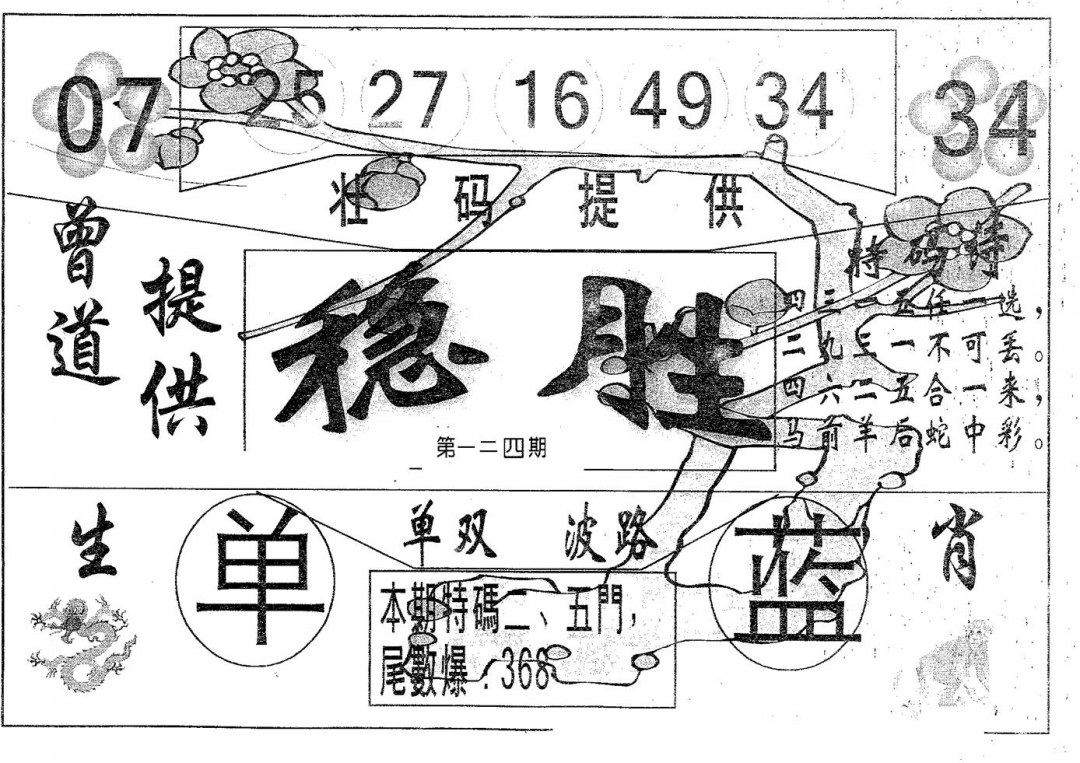 07 25 27 16 49 34 34
壮码提供
曾道
提供
稳胜
第一二四期
特码诗
四三一五任一选，
二九三一不可丢。
四六二五合一来，
马前羊后蛇中彩。
生 肖
单双 波路
单 蓝
本期特碼二、五門，
尾數爆：368